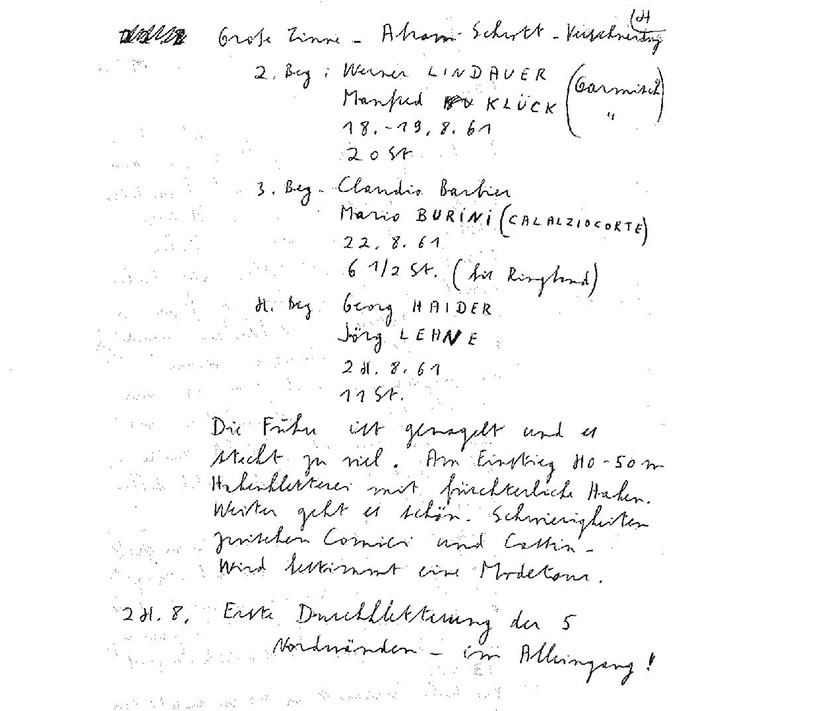 (4
Große Zinne - Abram-Schrott-Verschneidung
2. Beg: Werner LINDAUER (Garmisch
Manfred KLÜCK " )
18.-19.8.61
20 St
3. Beg - Claudio Barbier
Mario BURINI (CALALZIOCORTE)
22.8.61
6 1/2 St. (bis Ringband)
4. Beg Georg HAIDER
Jörg LEHNE
24.8.61
11 St.
Die Führe ist genagelt und es
steckt zu viel. Am Einstieg 40-50 m
Hakenkletterei mit fürchterliche Haken.
Weiter geht es schön. Schwierigkeiten
zwischen Comici und Cassin -
Wird bestimmt eine Modetour.
24.8. Erste Durchkletterung der 5
Nordwänden - im Alleingang!